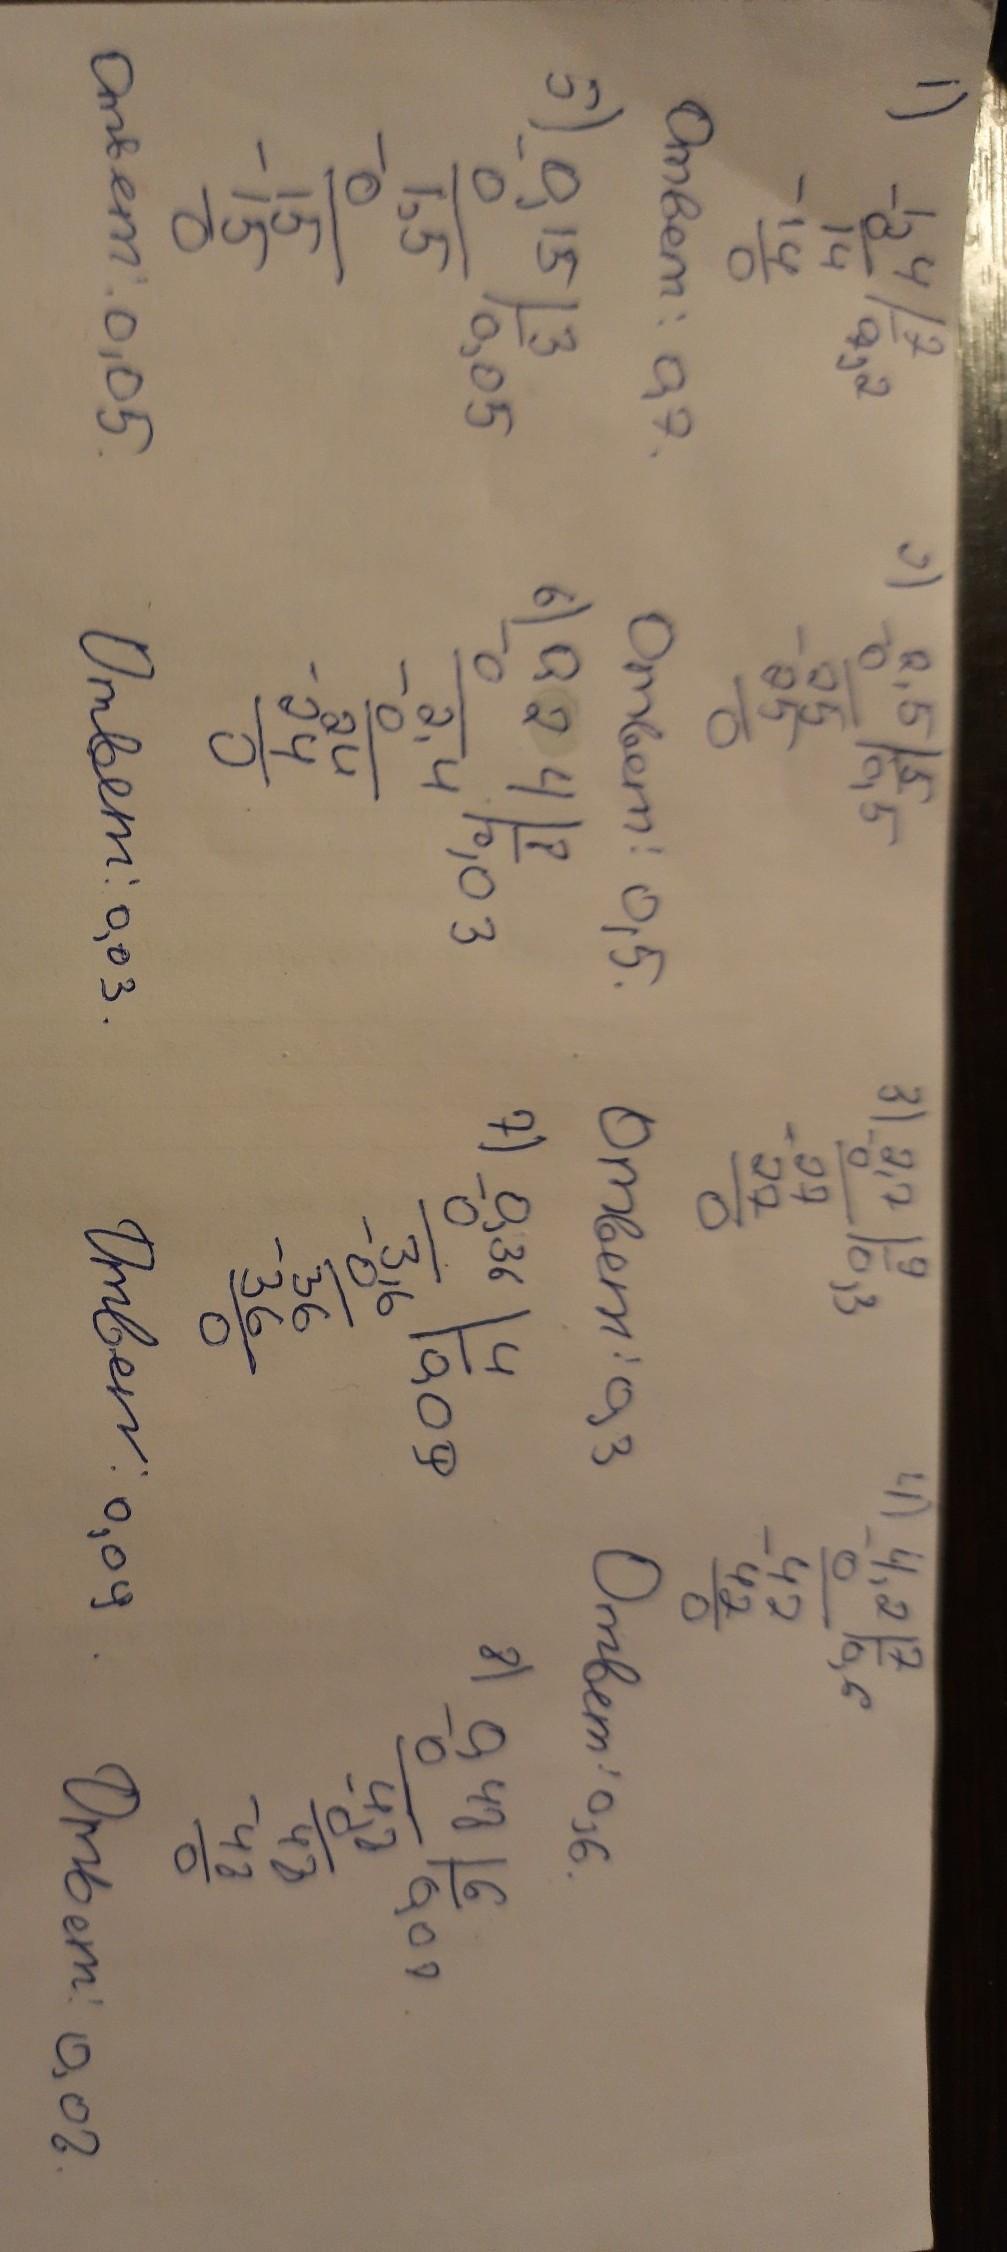 1) 1,4 | 7 2) 2,5 | 5 3) 2,7 | 9 4) 4,2 | 7
-0 0,2 -0 0,5 -0 0,3 -0 0,6
14 25 -27 -42
-14 -25 27 42
0 0 0 0
Ответ: 0,7. Ответ: 0,5. Ответ: 0,3 Ответ: 0,6.
5) 0,15 | 3 6) 0,24 | 8 7) 0,36 | 4 8) 0,48 | 6
-0 0,05 -0 0,03 -0 0,09 -0 0,08
1,5 2,4 3,6 4,8
-0 -0 -0 -0
15 24 36 48
-15 -24 -36 -48
0 0 0 0
Ответ: 0,05. Ответ: 0,03. Ответ: 0,09. Ответ: 0,08.